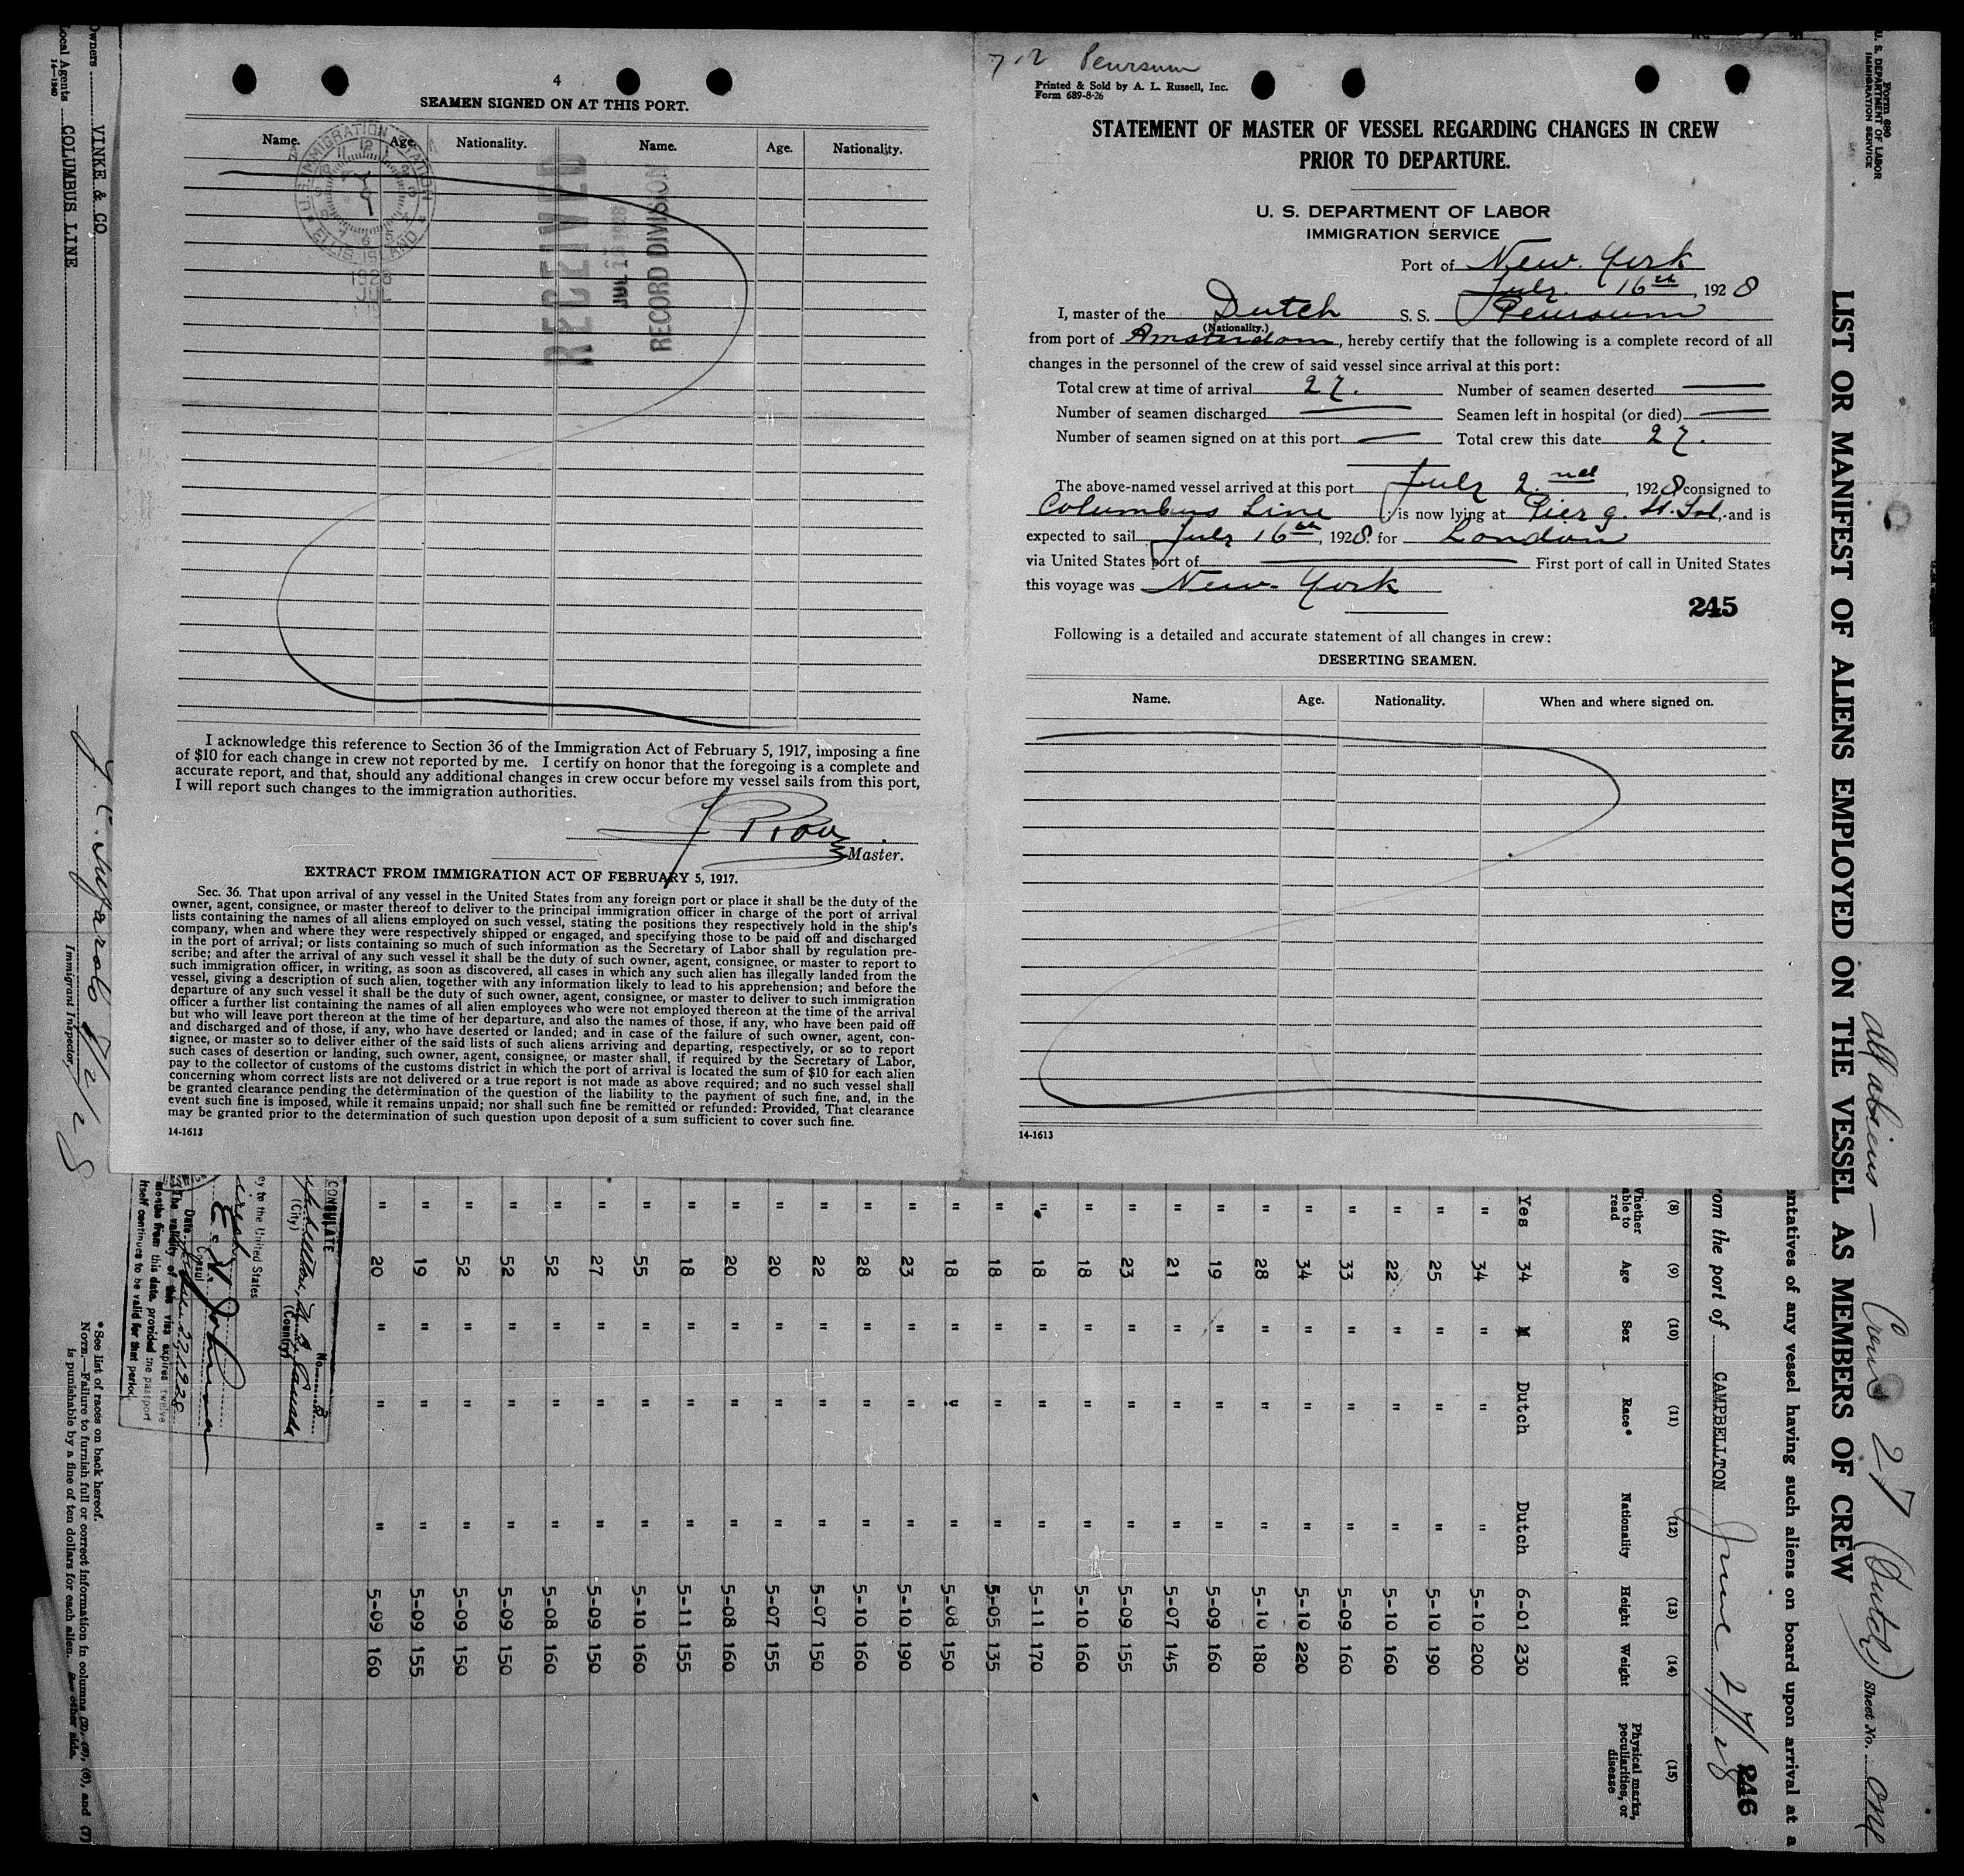 4
SEAMEN SIGNED ON AT THIS PORT.
Name. Age. Nationality. Name. Age. Nationality.
U.S. IMMIGRATION STATION
ELLIS ISLAND
1928
JUL
RECEIVED
JUL 1928
RECORD DIVISION
I acknowledge this reference to Section 36 of the Immigration Act of February 5, 1917, imposing a fine
of $10 for each change in crew not reported by me. I certify on honor that the foregoing is a complete and
accurate report, and that, should any additional changes in crew occur before my vessel sails from this port,
I will report such changes to the immigration authorities.
Master.
EXTRACT FROM IMMIGRATION ACT OF FEBRUARY 5, 1917.
Sec. 36. That upon arrival of any vessel in the United States from any foreign port or place it shall be the duty of the
owner, agent, consignee, or master thereof to deliver to the principal immigration officer in charge of the port of arrival
lists containing the names of all aliens employed on such vessel, stating the positions they respectively hold in the ship's
company, when and where they were respectively shipped or engaged, and specifying those to be paid off and discharged
in the port of arrival; or lists containing so much of such information as the Secretary of Labor shall by regulation pre-
scribe; and after the arrival of any such vessel it shall be the duty of such owner, agent, consignee, or master to report to
such immigration officer, in writing, as soon as discovered, all cases in which any such alien has illegally landed from the
vessel, giving a description of such alien, together with any information likely to lead to his apprehension; and before the
departure of any such vessel it shall be the duty of such owner, agent, consignee, or master to deliver to such immigration
officer a further list containing the names of all alien employees who were not employed thereon at the time of the arrival
but who will leave port thereon at the time of her departure, and also the names of those, if any, who have been paid off
and discharged and of those, if any, who have deserted or landed; and in case of the failure of such owner, agent, con-
signee, or master so to deliver either of the said lists of such aliens arriving and departing, respectively, or so to report
such cases of desertion or landing, such owner, agent, consignee, or master shall, if required by the Secretary of Labor,
pay to the collector of customs of the customs district in which the port of arrival is located the sum of $10 for each alien
concerning whom correct lists are not delivered or a true report is not made as above required; and no such vessel shall
be granted clearance pending the determination of the question of the liability to the payment of such fine, and, in the
event such fine is imposed, while it remains unpaid; nor shall such fine be remitted or refunded: Provided, That clearance
may be granted prior to the determination of such question upon deposit of a sum sufficient to cover such fine.
14-1613
7-2 Peursum
Printed & Sold by A. L. Russell, Inc.
Form 689-8-26
STATEMENT OF MASTER OF VESSEL REGARDING CHANGES IN CREW
PRIOR TO DEPARTURE.
U. S. DEPARTMENT OF LABOR
IMMIGRATION SERVICE
Port of New York
July 16th, 1928
I, master of the Dutch S. S. Peursum
(Nationality.)
from port of Amsterdam, hereby certify that the following is a complete record of all
changes in the personnel of the crew of said vessel since arrival at this port:
Total crew at time of arrival 27. Number of seamen deserted
Number of seamen discharged Seamen left in hospital (or died)
Number of seamen signed on at this port Total crew this date 27.
The above-named vessel arrived at this port July 2nd, 1928, consigned to
Columbus Line; is now lying at Pier 9. and is
expected to sail July 16th, 1928. for London
via United States port of First port of call in United States
this voyage was New York
245
Following is a detailed and accurate statement of all changes in crew:
DESERTING SEAMEN.
Name. Age. Nationality. When and where signed on.
14-1613
Form 689
U. S. DEPARTMENT OF LABOR
IMMIGRATION SERVICE
all aliens — Crew 27 (Dutch) Sheet No. one
LIST OR MANIFEST OF ALIENS EMPLOYED ON THE VESSEL AS MEMBERS OF CREW
ntatives of any vessel having such aliens on board upon arrival at a
rom the port of CAMPBELLTON June 27/28
246
(8) (9) (10) (11) (12) (13) (14) (15)
Whether able to read Age Sex Race* Nationality Height Weight Physical marks, peculiarities, or disease
Yes 34 M Dutch Dutch 6-01 230
" 34 " " " 5-10 200
" 25 " " " 5-10 190
" 22 " " " 5-10 160
" 33 " " " 5-09 160
" 34 " " " 5-10 220
" 28 " " " 5-10 180
" 19 " " " 5-09 160
" 21 " " " 5-07 145
" 23 " " " 5-09 155
" 18 " " " 5-10 160
" 18 " " " 5-11 170
" 18 " " " 5-05 135
" 18 " " " 5-08 150
" 23 " " " 5-10 190
" 28 " " " 5-10 160
" 22 " " " 5-07 150
" 20 " " " 5-07 155
" 20 " " " 5-08 160
" 18 " " " 5-11 155
" 55 " " " 5-10 160
" 27 " " " 5-09 150
" 52 " " " 5-08 160
" 52 " " " 5-09 150
" 52 " " " 5-09 150
" 19 " " " 5-09 155
" 20 " " " 5-09 160
CONSULATE
No. 3
Campbellton, N.B. Canada
(City) (Country)
ey to the United States
E. A. Johnson
Consul
Date
The validity of this visa expires twelve
months from this date, provided the passport
itself continues to be valid for that period.
* See list of races on back hereof.
NOTE.—Failure to furnish full or correct information in columns (2), (6), and (7)
is punishable by a fine of ten dollars for each alien. See other side.
Owners VINKE & CO
Local Agents COLUMBUS LINE
14—1240
7/2/28
Immigrant Inspector.